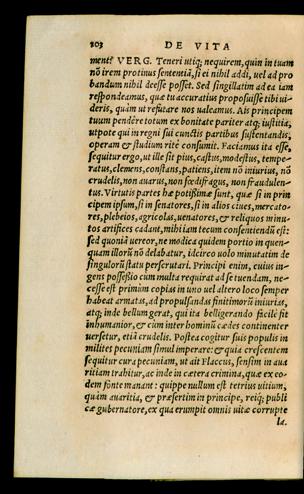 203 DE VITA
ment? VERG. Teneri utiq; nequirem, quin in tuam
nō irem protinus sententiā, si ei nihil addi, uel ad pro
bandum nihil deesse posset. Sed singillatim ad ea iam
respondeamus, quæ tu accuratius proposuisse tibi ui-
deris, quàm ut refutare nos ualeamus. Ais principem
tuum pendêre totum ex bonitate pariter atq; iustitia,
utpote qui in regni sui cunctis partibus sustentandis,
operam & studium ritè consumit. Faciamus ita esse,
sequitur ergo, ut ille sit pius, castus, modestus, tempe-
ratus, clemens, constans, patiens, item nō iniurius, nō
crudelis, non auarus, non fœdifragus, non fraudulen-
tus. Virtutis partes hæ potissimæ sunt, quæ si in prin
cipem ipsum, si in senatores, si in alios ciues, mercato-
res, plebeios, agricolas, uenatores, & reliquos minu-
tos artifices cadant, mihi iam tecum consentiendū est:
sed quoniā uereor, ne modica quidem portio in quen-
quam illorū nō delabatur, idcirco uolo minutatim de
singulorū statu perscrutari. Principi enim, cuius in-
gens possessio cum multa requirat ad se tuendam, ne-
cesse est primùm copias in uno uel altero loco semper
habeat armatas, ad propulsandas finitimorū iniurias,
atq; inde bellum gerat, qui ita belligerando facilè fit
inhumanior, & cùm inter hominū cædes continenter
uersetur, etiā crudelis. Postea cogitur suis populis in
milites pecuniam simul imperare: & quia crescentem
sequitur cura pecuniam, ut ait Flaccus, sensim in aua
ritiam trahitur, ac inde in cætera crimina, quæ ex eo-
dem fonte manant: quippe nullum est tetrius uitium,
quàm auaritia, & præsertim in principe, reiq; publi
cæ gubernatore, ex qua erumpit omnis uitæ corrupte
la.